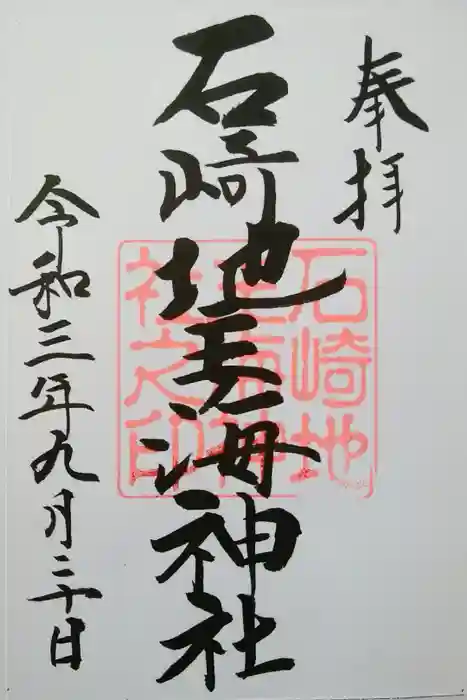 奉拝
石崎地主海神社
令和三年九月二十日
石崎地
主海神
社之印